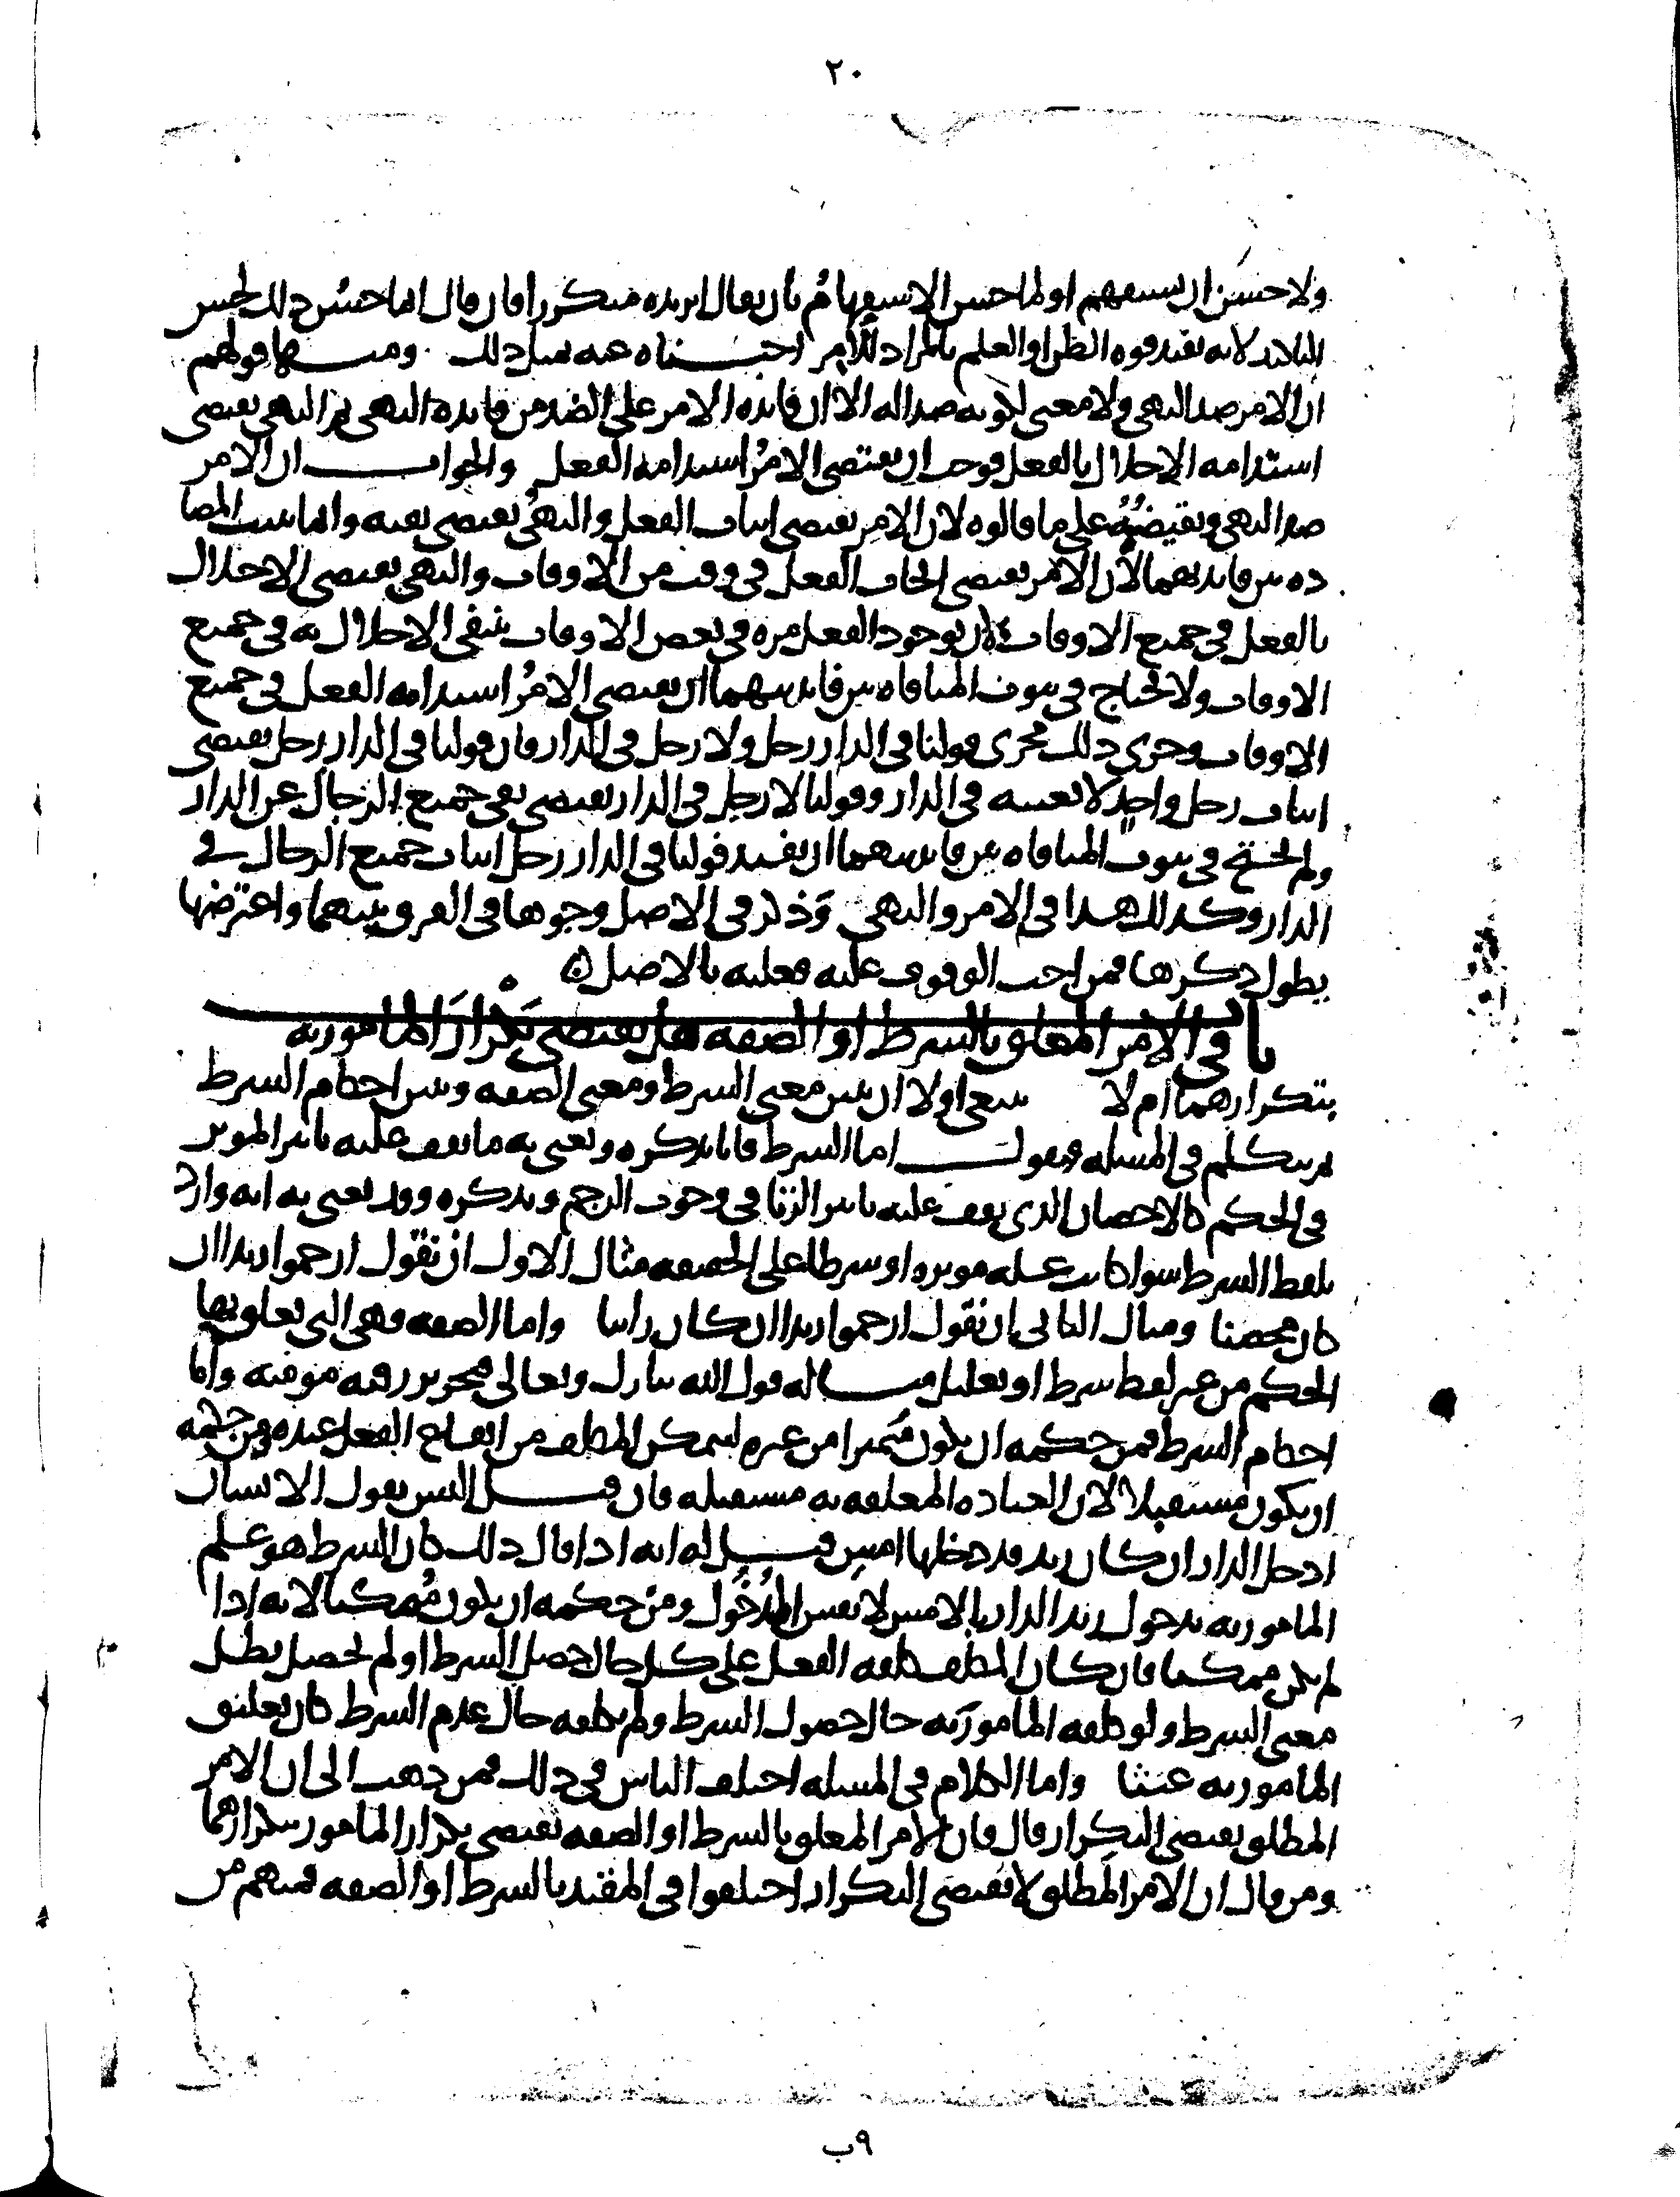 ٢٠
ولا حسن ان يستفهم اولما حسن الاستفهام بأن يقال اتريده متكررا فان قال انما حسن ذلك لحسن
التاكيد لانه يفيد قوة الظن او العلم بالمراد بالامر اجبناه عنه بمثل ذلك ومنها قولهم
ان الامر ضد النهي ولا معنى لكونه ضدا له الا ان فائدة الامر على الضد من فائدة النهي ثم النهي يقتضي
استدامة الاخلال بالفعل فوجب ان يقتضي الامرُ استدامة الفعل والجواب ان الامر
ضد النهي ونقيضُهُ على ما قالوه لان الامر يقتضي اثبات الفعل والنهيُ يقتضي نفيه وانما تثبت المضا
دة بين فائدتيهما لأن الامر يقتضي ايجاب الفعل في وقت من الاوقات والنهي يقتضي الاخلال
بالفعل في جميع الاوقات لان بوجود الفعل مرة في بعض الاوقات ينتفي الاخلال به في جميع
الاوقات ولا يحتاج في ثبوت المنافاة بين فائدتيهما ان يقتضي الامرُ استدامة الفعل في جميع
الاوقات وجرى ذلك مجرى قولنا في الدار رجل ولا رجل في الدار فان قولنا في الدار رجل يقتضي
اثبات رجل واحد لا بعينه في الدار وقولنا لا رجل في الدار يقتضي نفي جميع الرجال عن الدار
ولم يحتج في ثبوت المنافاة بين فائدتيهما ان يفيد قولنا في الدار رجل اثبات جميع الرجال في
الدار وكذلك هذا في الامر والنهي وَذكر في الاصل وجوها في الفرق بينهما واعترضها
يطول ذكرها فمن احب الوقوف عليه فعليه بالاصل ن
باب في الامر المعلق بالشرط او الصفه هل يقتضي تكرارَ المامور به
بتكرارهما ام لا ينبغي اولا ان نبين معنى الشرط ومعنى الصفه ونبين احكام الشرط
ثم نتكلم في المسئله فنقول اما الشرط فانا نذكره ونعني به ما يقف عليه تاثير الموثر
في الحكم كالاحصان الذي يقف عليه تاثير الزنا في وجوب الرجم ونذكره وقد نعني به انه وارد
بلفظ الشرط سوا كانت عله موثره او شرطا على الحقيقه مثال الاول ان نقول ارجموا زيدا ان
كان محصنا ومثال الثاني ان نقول ارجموا زيدا ان كان زانيا واما الصفه فهي التي تعلق بها
الحكم من غير لفظ شرط او تعليل مثاله قول الله تبارك وتعالى فتحرير رقبه مومنه واما
احكام الشرط فمن حكمه ان يكون متميزا من غيره ليتمكن المكلف من ايقاع الفعل عنده ومن حكمه
ان يكون مستقبلا لان العباده المعلقه به مستقبله فان قيل اليس يقول الانسان
ادخل الدار ان كان زيد قد دخلها امس قيل له انه اذا قال ذلك كان الشرط هو علم
المامور به بدخول زيد الدار بالامس لا نفس الدُخُول ومن حكمه ان يكون مُمكنا لانه اذا
لم يكن ممكنا فان كان المكلف كلفه الفعل على كل حال حصل الشرط او لم يحصل بطل
معنى الشرط ولو كلفه المامور به حال حصول الشرط ولم يكلفه حال عدم الشرط كان تعليق
المامور به عبثا واما الكلام في المسئله اختلف الناس في ذلك فمن ذهب الى ان الامر
المطلق يقتضي التكرار قال فان الامر المعلق بالشرط او الصفه يقتضي تكرار المامور بتكرارهما
ومن قال ان الامر المطلق لا يقتضي التكرار اختلفوا في المقيد بالشرط او الصفه فمنهم من
٩ب